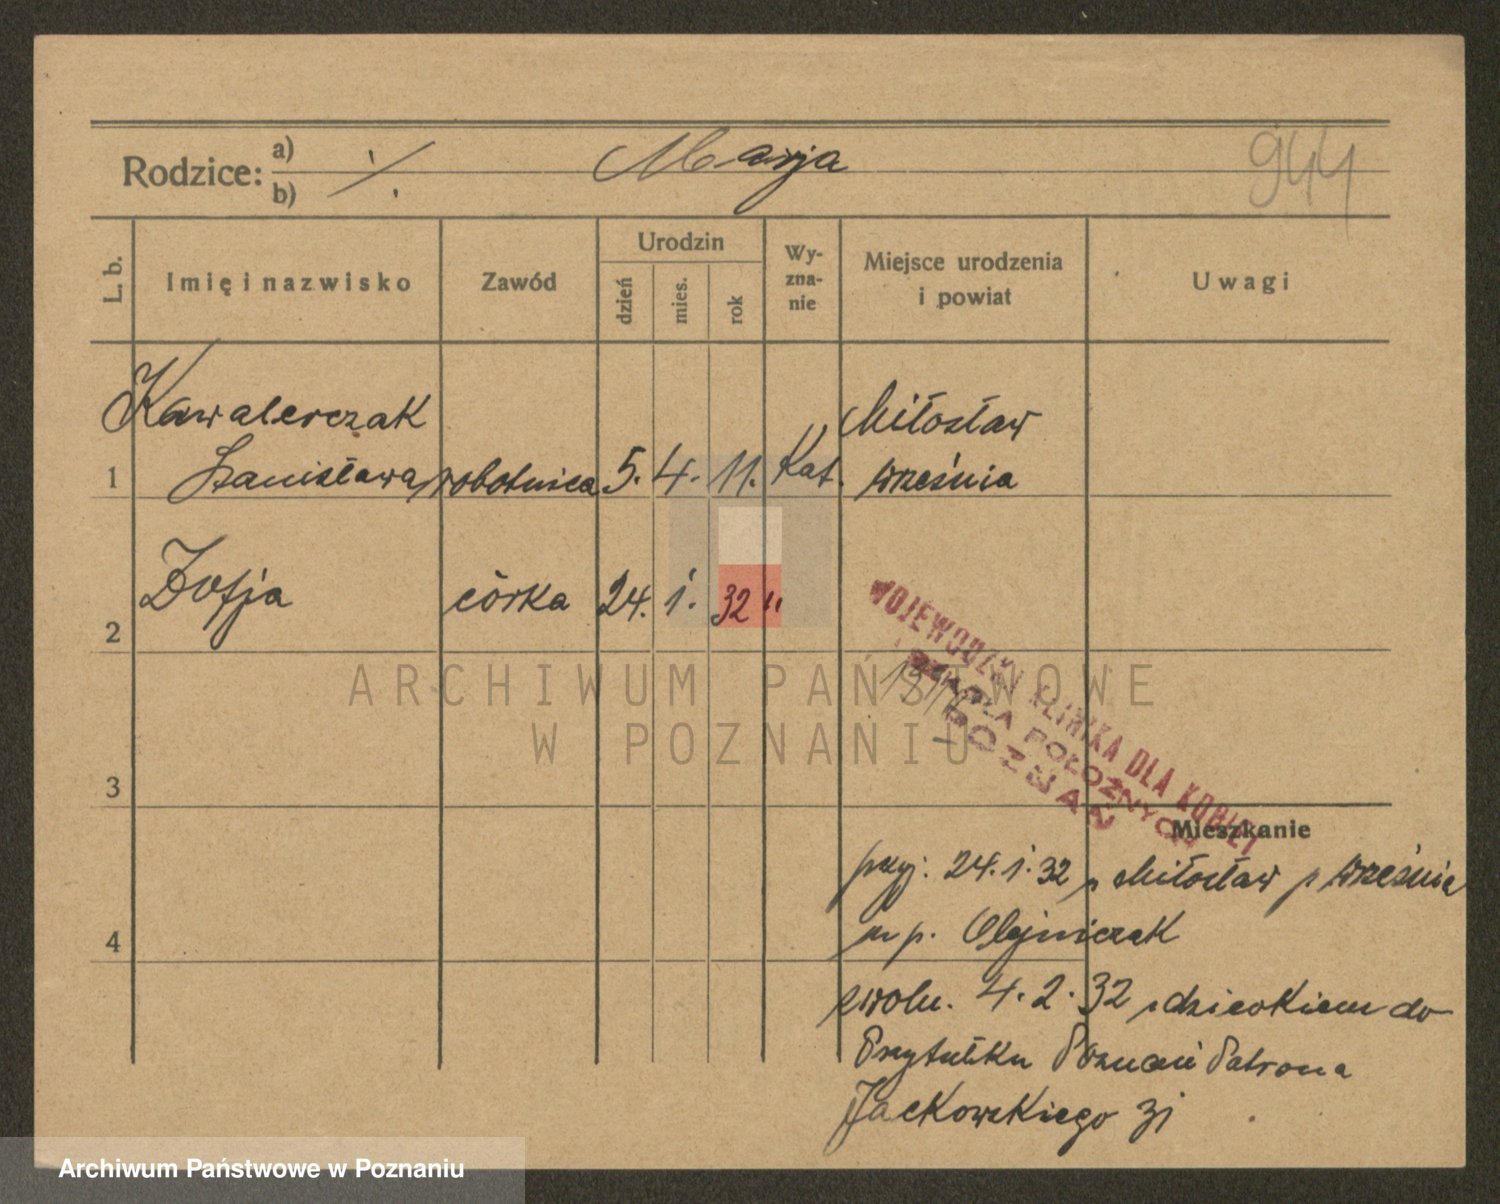 Rodzice: a) b) ./. Marja 944
L. b. Imię i nazwisko Zawód Urodzin dzień mies. rok Wy-zna-nie Miejsce urodzenia i powiat Uwagi
Kawalerczak Miłosław
1 Stanisława robotnica 5. 4. 11. Kat. Września
2 Zofja córka 24. 1. 32 "
WOJEWÓDZKA KLINIKA DLA KOBIET
POŁOŻNYCH
POZNAŃ
ARCHIWUM PAŃSTWOWE
W POZNANIU
3
Mieszkanie
przyj. 24.1.32 z Miłosław p Września
4 u p. Olejniczak
zwoln. 4.2.32 z dzieckiem do
Przytułku Poznań Patrona
Jackowskiego 31
Archiwum Państwowe w Poznaniu